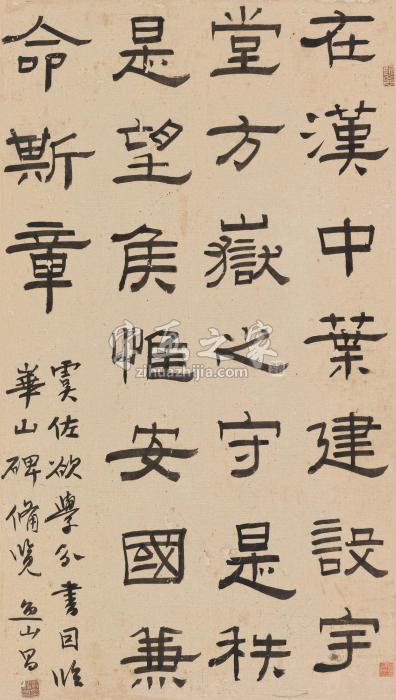 在漢中葉建設宇
堂方嶽之守是秩
是望矦惟安國兼
命斯章
虞佐欲學分書因臨
華山碑備覽 山昌
字画之家
zihuazhijia.com